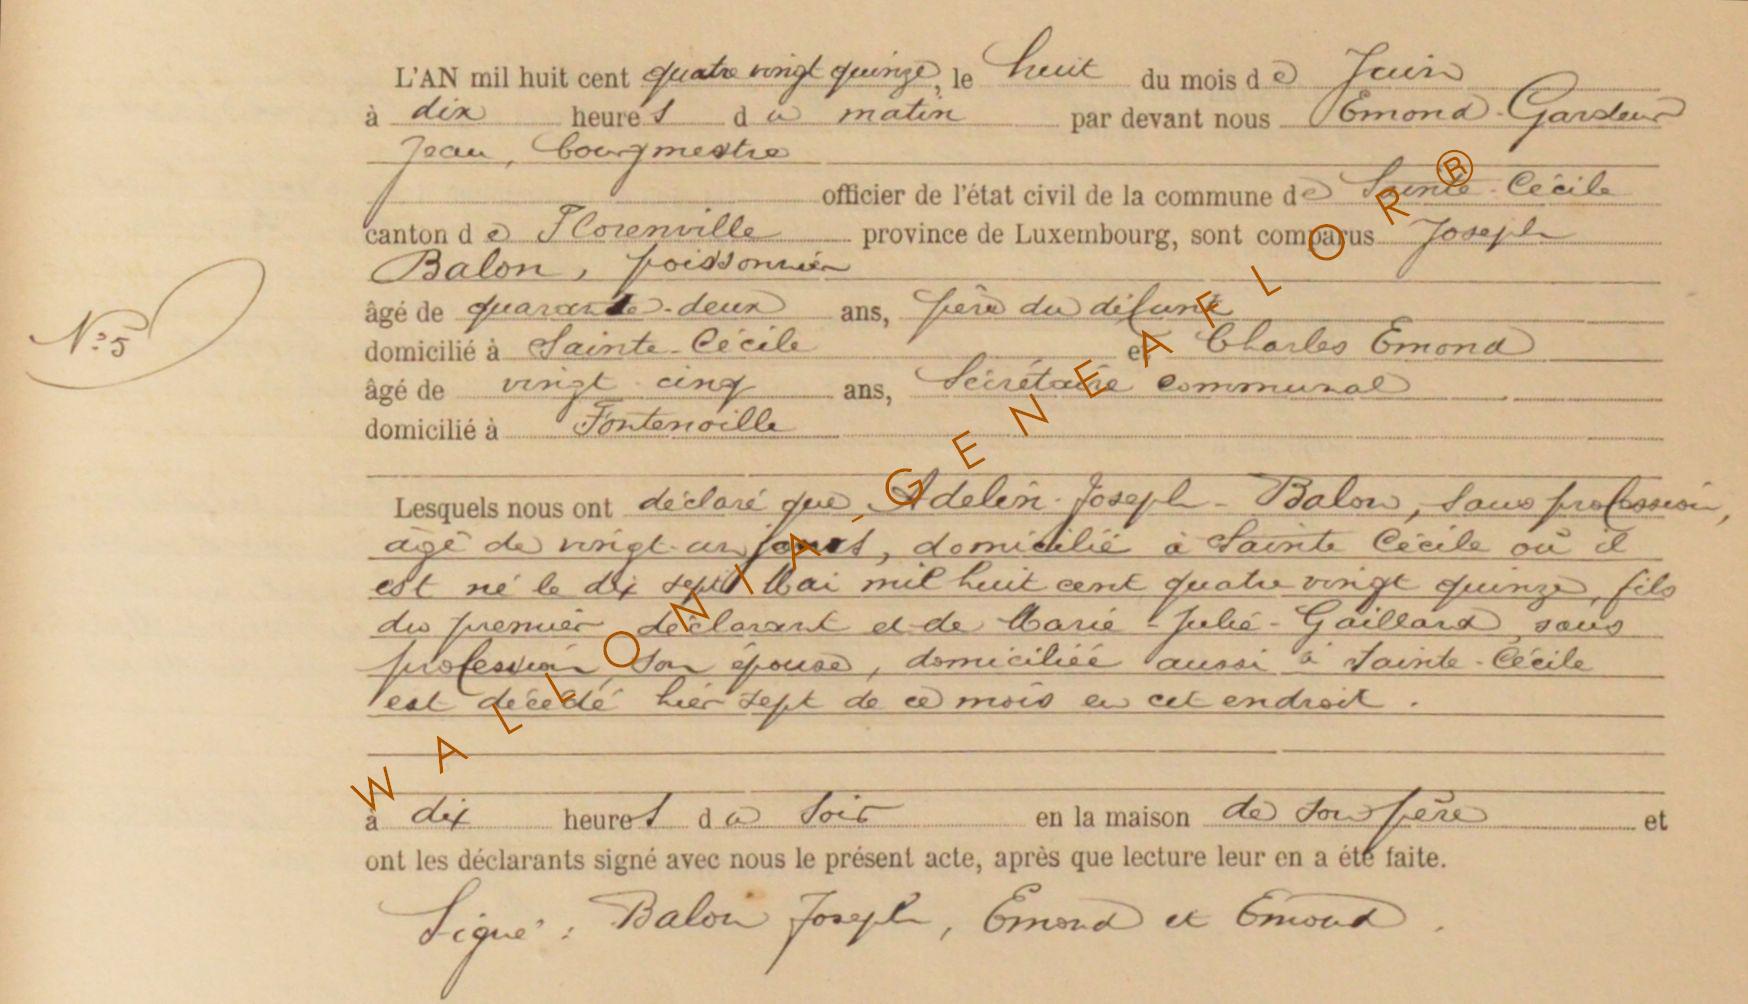 L'AN mil huit cent quatre vingt quinze, le huit du mois de Juin
à dix heures du matin par devant nous Emond-Gardeur
Jean, bourgmestre
officier de l'état civil de la commune de Sainte-Cécile
canton de Florenville province de Luxembourg, sont comparus Joseph
Balon, poissonnier
N° 5
âgé de quarante-deux ans, père du défunt
domicilié à Sainte-Cécile et Charles Emond
âgé de vingt-cinq ans, Sécrétaire communal
domicilié à Fontenoille
Lesquels nous ont déclaré que Adelin-Joseph-Balon, sans profession,
âgé de vingt-un jours, domicilié à Sainte Cécile où il
est né le dix sept Mai mil huit cent quatre vingt quinze, fils
du premier déclarant et de Marie-Julie-Gaillard sans
profession, son épouse, domiciliée aussi à Sainte-Cécile
est décédé hier sept de ce mois en cet endroit.
à dix heures du soir en la maison de son père et
ont les déclarants signé avec nous le présent acte, après que lecture leur en a été faite.
Signé: Balon Joseph, Emond et Emond.
WALLONIA-GENEAFLOR®